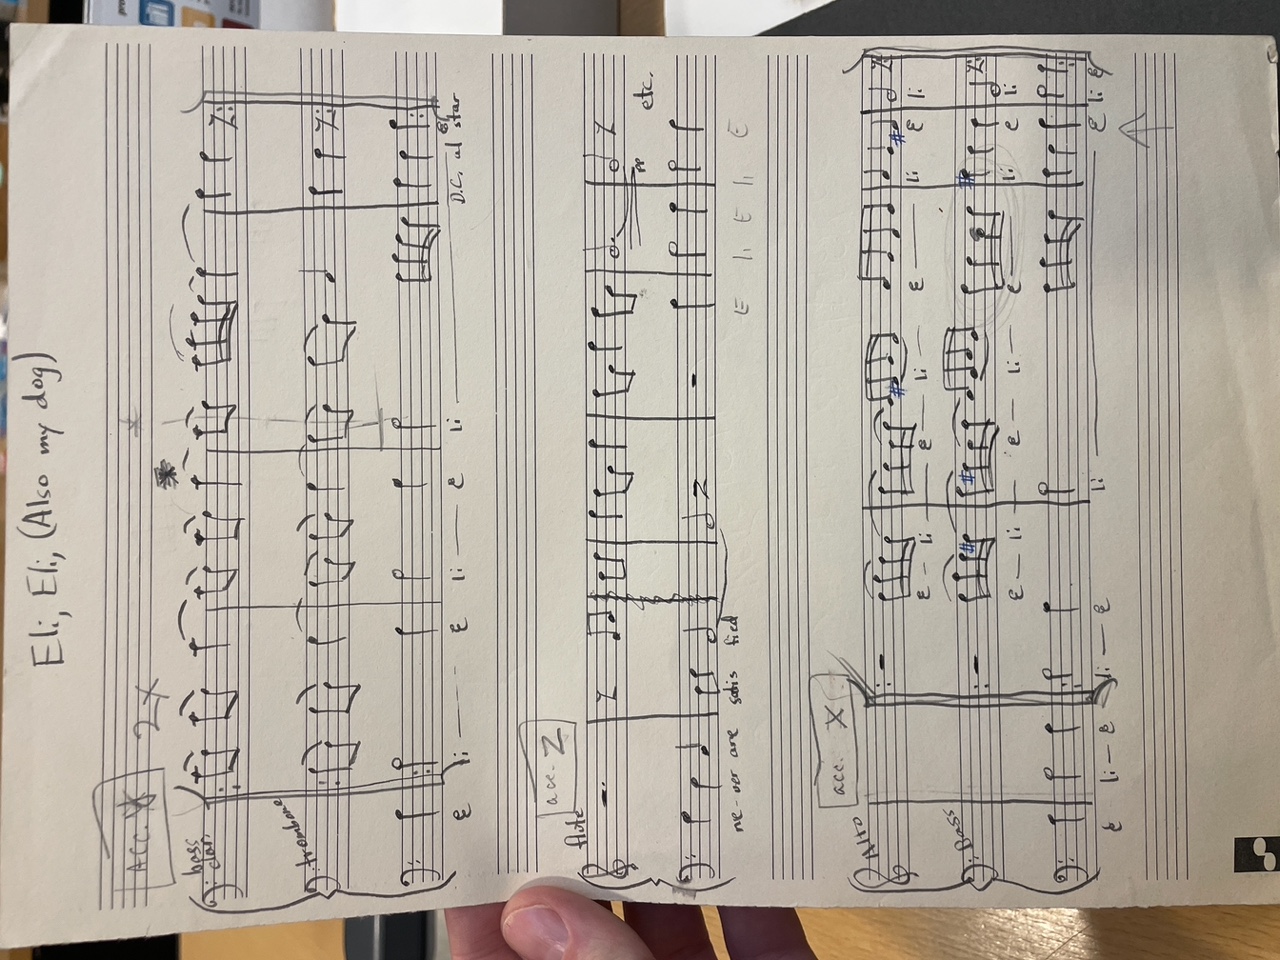 Eli, Eli, (Also my dog)
2X
bass
clar.
trombone
E li E li E li
D.C. al star
acc. Z
flute
pp
etc.
ne-ver are satis fied
E li E li E
acc. X
Alto
E - li E li E li E li
Bass
E - li E li E li E li
E li - E li - E li E li E